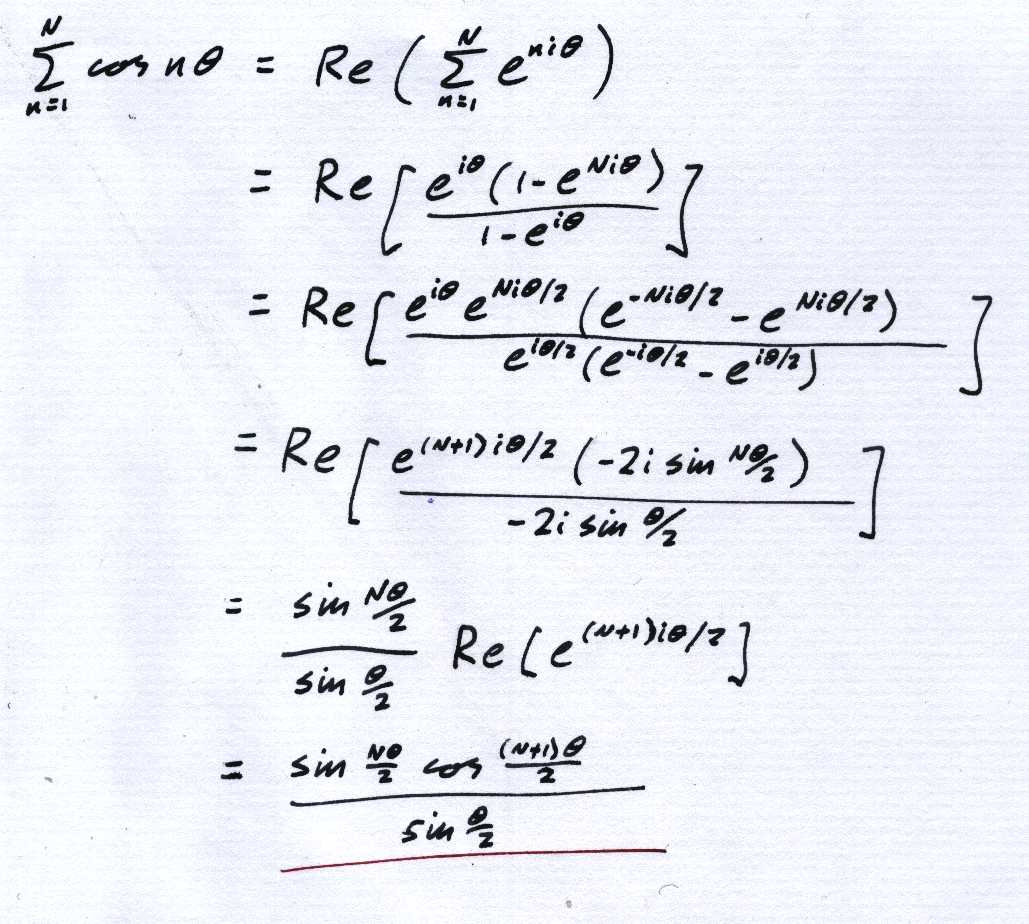 \sum_{n=1}^{N} \cos nθ = Re ( \sum_{n=1}^{N} e^{niθ} )
= Re [ \frac{e^{iθ} (1 - e^{Niθ})}{1 - e^{iθ}} ]
= Re [ \frac{e^{iθ} e^{Niθ/2} (e^{-Niθ/2} - e^{Niθ/2})}{e^{iθ/2} (e^{-iθ/2} - e^{iθ/2})} ]
= Re [ \frac{e^{(N+1)iθ/2} (-2i \sin Nθ/2)}{-2i \sin θ/2} ]
= \frac{\sin \frac{Nθ}{2}}{\sin \frac{θ}{2}} Re [ e^{(N+1)iθ/2} ]
= \frac{\sin \frac{Nθ}{2} \cos \frac{(N+1)θ}{2}}{\sin \frac{θ}{2}}